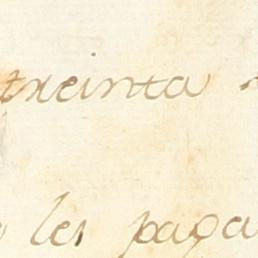 treinta
les paga